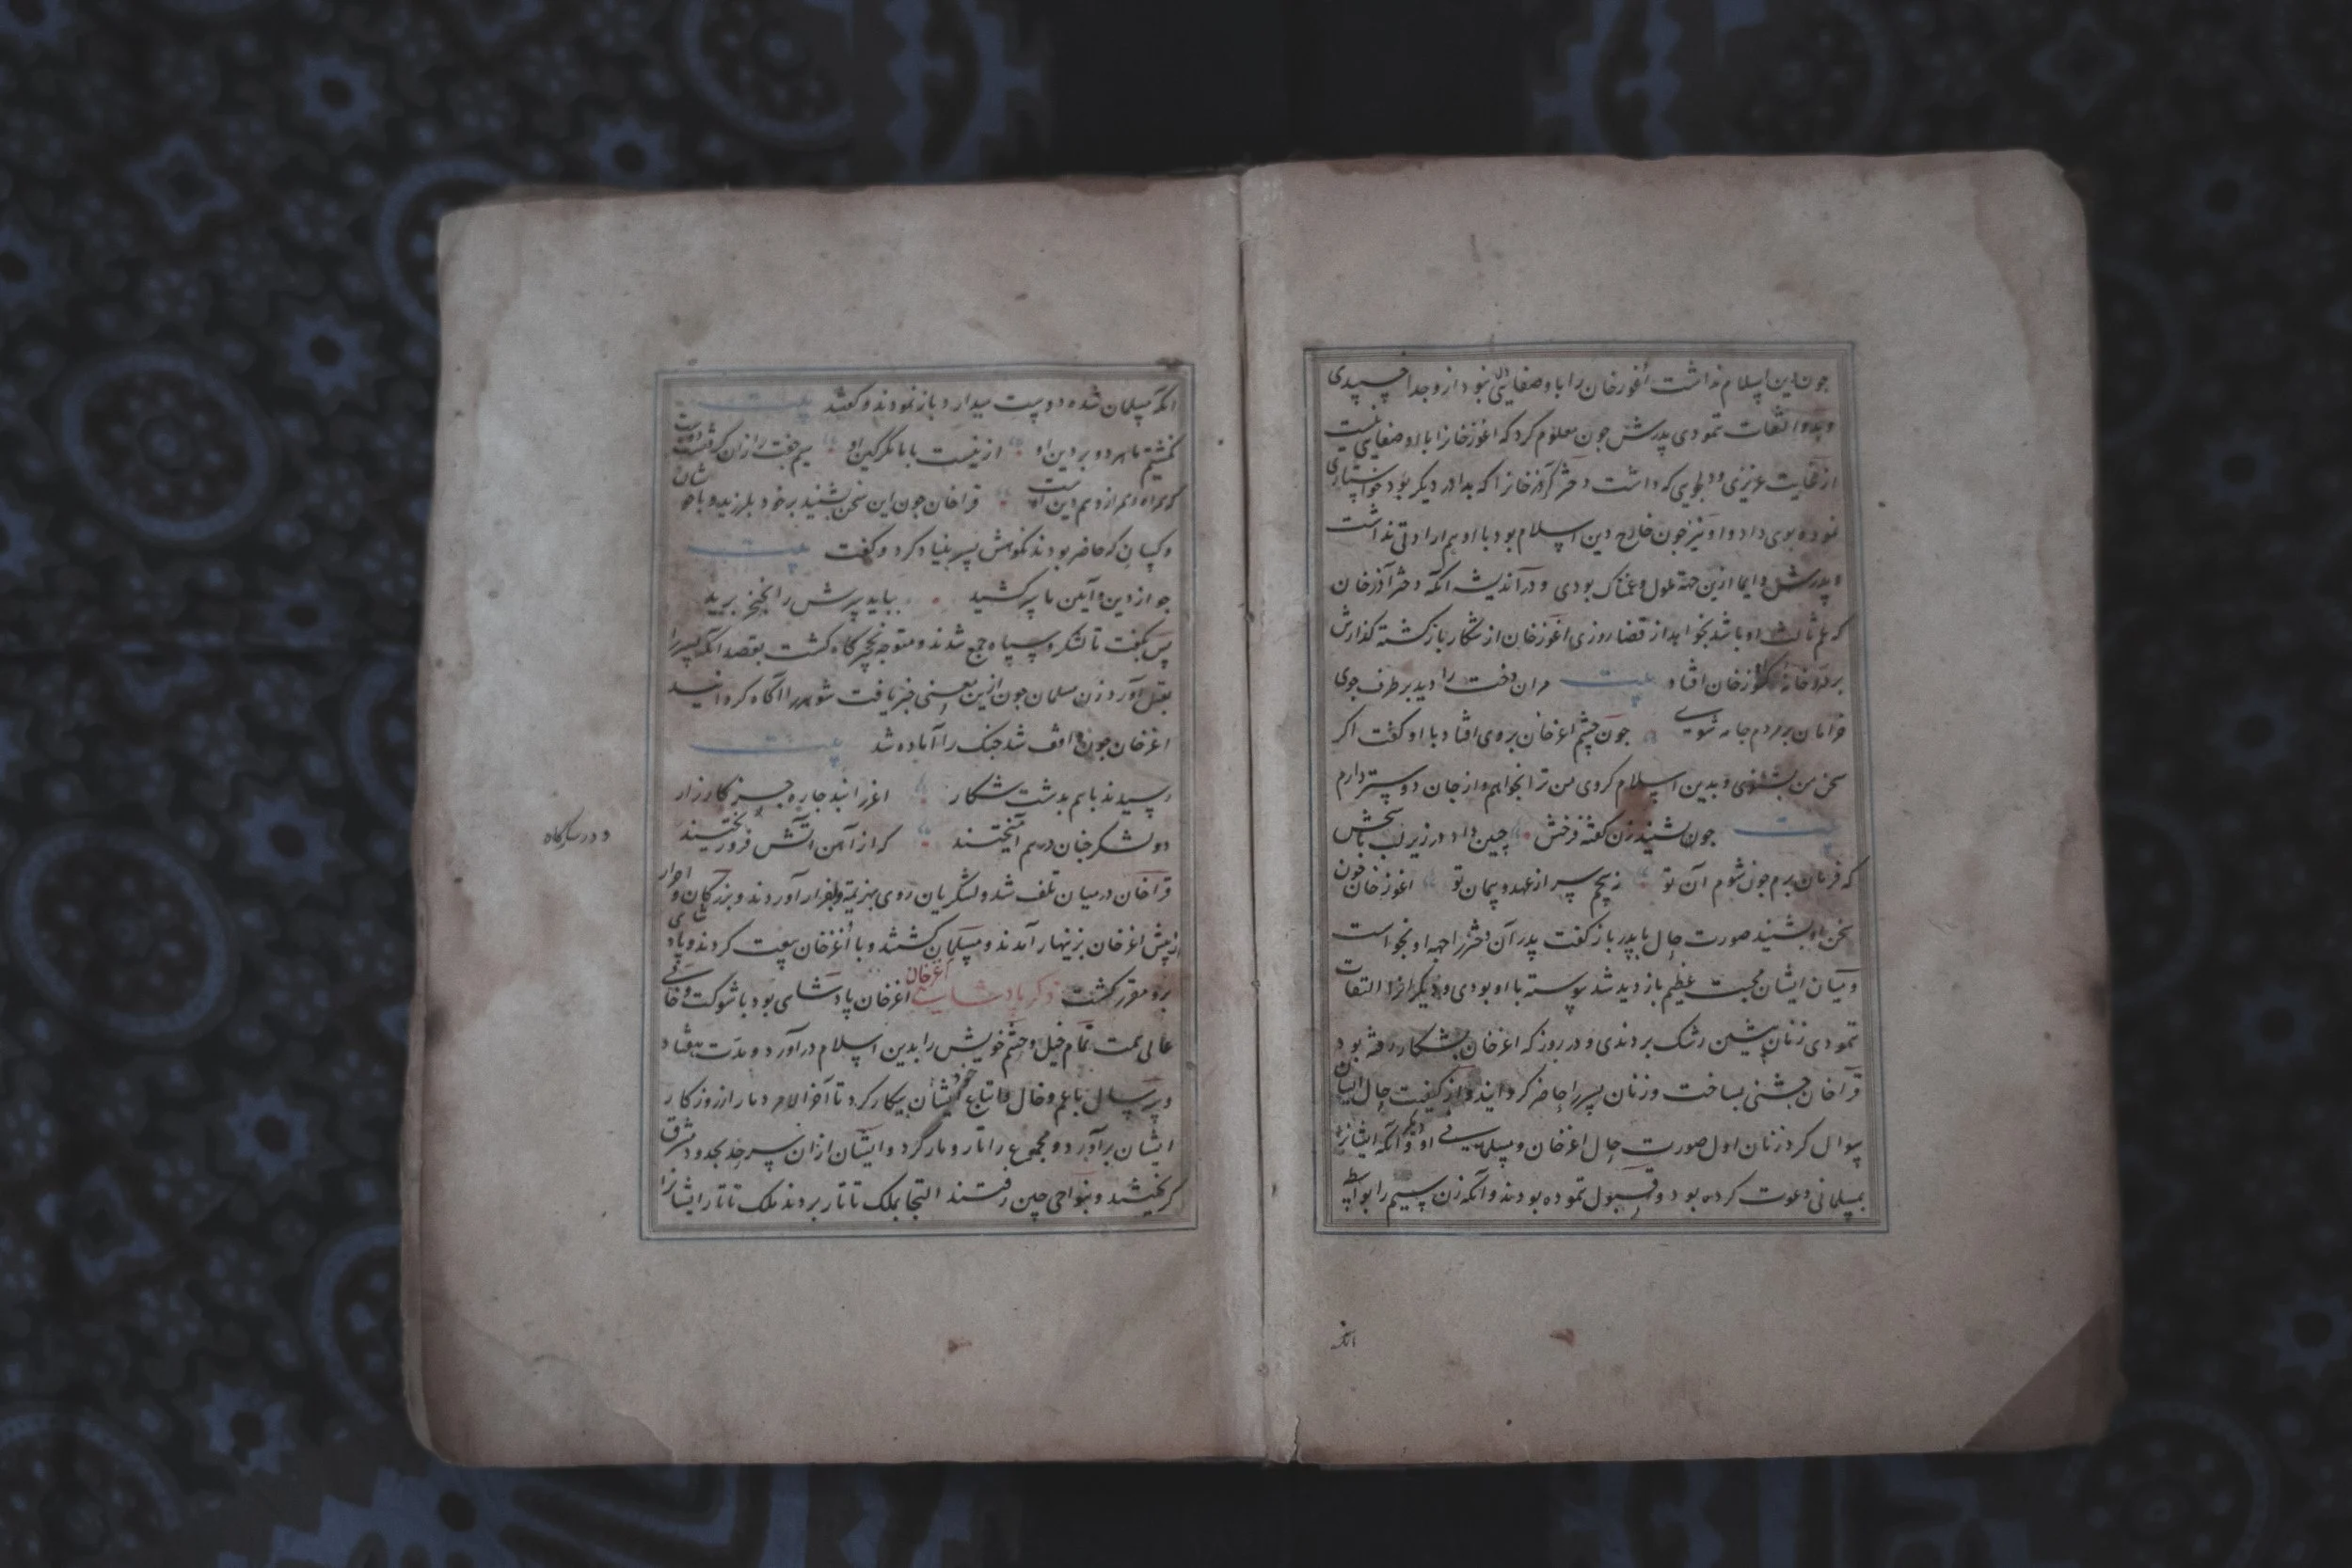 چون این اسلام نداشت اغوزخان را با او صفایی دلی نبود از وجدا خسپیدی
و بدو التفات ننمودی پدرش چون معلوم کرد که اغوزخانرا با او صفایی نیست
از غایت عزیزی و دلجویی که داشت دختر گزخانرا که برادر دیگر بود خواستاری
نموده بوی داد و او نیز چون خارج دین اسلام بود با او هم ارادتی نداشت
و پدرش دایما ازین جهة ملول و غمناک بودی و در آندیشه انکه دختر آذرخان
که هم ثالث او باشد بخواهد از قضا روزی اغوزخان از شکار بازگشته گذارش
بر در خانهٔ خان افتاد بیت مران دخت را دید بر طرف جوی
خرامان بر مردم جامه شوی چون چشم اغزخان بروی افتاد با او گفت اگر
سخن من بشنوی و بدین اسلام گروی من ترا بخواهم و از جان دوستر دارم
بیت چون بشنید زن گفته فرخش چنین داد در زیر لب پاسخش
که فرمان برم چون شوم آن تو نپیچم سر از عهد و پیمان تو اغوزخان چون
سخن او بشنید صورت حال با پدر باز گفت پدر آن دختر را جهة او بخواست
و میان ایشان محبت عظیم بازدید شد پیوسته با او بودی و دیگرانرا التفات
ننمودی زنان پیشین رشک بردندی و در روز که اغزخان بشکار رفته بود
قراخان جشنی بساخت و زنان پسر را حاضر گردانید و از کیفیت حال ایشان
سوال کرد زنان اول صورت حال اغزخان و مسلمانی او و دیگر آنکه ایشانرا
بمسلمانی دعوت کرده بود و قبول ننموده بودند و آنکه زن سیم را بواسطه
انکه
انکه مسلمان شده دوست میدارد باز نمودند و گفتند بیت
نگشتیم ما هر دو بر دین او ازینست با ما مگر کین او سیم جفت را زان گرفتست دوست
که همراه و همراز و هم دین اوست قراخان چون این سخن بشنید بر خود بلرزید و با خو
و کسان که حاضر بودند نکوهش پسر بنیاد کرد و گفت بیت
چو از دین و آیین ما سر کشید بباید سرش را بخنجر برید
پس بگفت تا لشکر و سپاه جمع شدند و متوجه نخچیرگاه گشت بقصد آنکه پسر را
بقتل آورد زن مسلمان چون ازین معنی خبر یافت شوهر را آگاه گردانید
اغزخان چون واقف شد جنگ را آماده شد بیت
رسیدند باهم بدشت شکار اغز را نبد چاره جز کارزار
دو لشکر چنان درهم آمیختند که از آهن آتش فرو ریختند
و در شکارگاه
قراخان در میان تلف شد و لشکریان روی بهزیمة و فرار آوردند و بزرگان و احرار
از پیش اغزخان بزینهار آمدند و مسلمان گشتند و با اغزخان بیعت کردند و پادشاهی
برو مقرر گشت ذکر پادشاهی اغزخان اغزخان پادشاهی بود با شوکت و خانی
عالی همت تمام خیل و حشم خویش را بدین اسلام درآورد و مدت هفتاد
و پنج سال با عم و خال و اتباع خود پیکار کرد تا آخر الامر دمار از روزگار
ایشان برآورد و مجموع را تار و مار کرد و ایشان ازان سرحد بحدود مشرق
گریختند و بنواحی چین رفتند التجا بملک تاتار بردند ملک تاتار ایشانرا